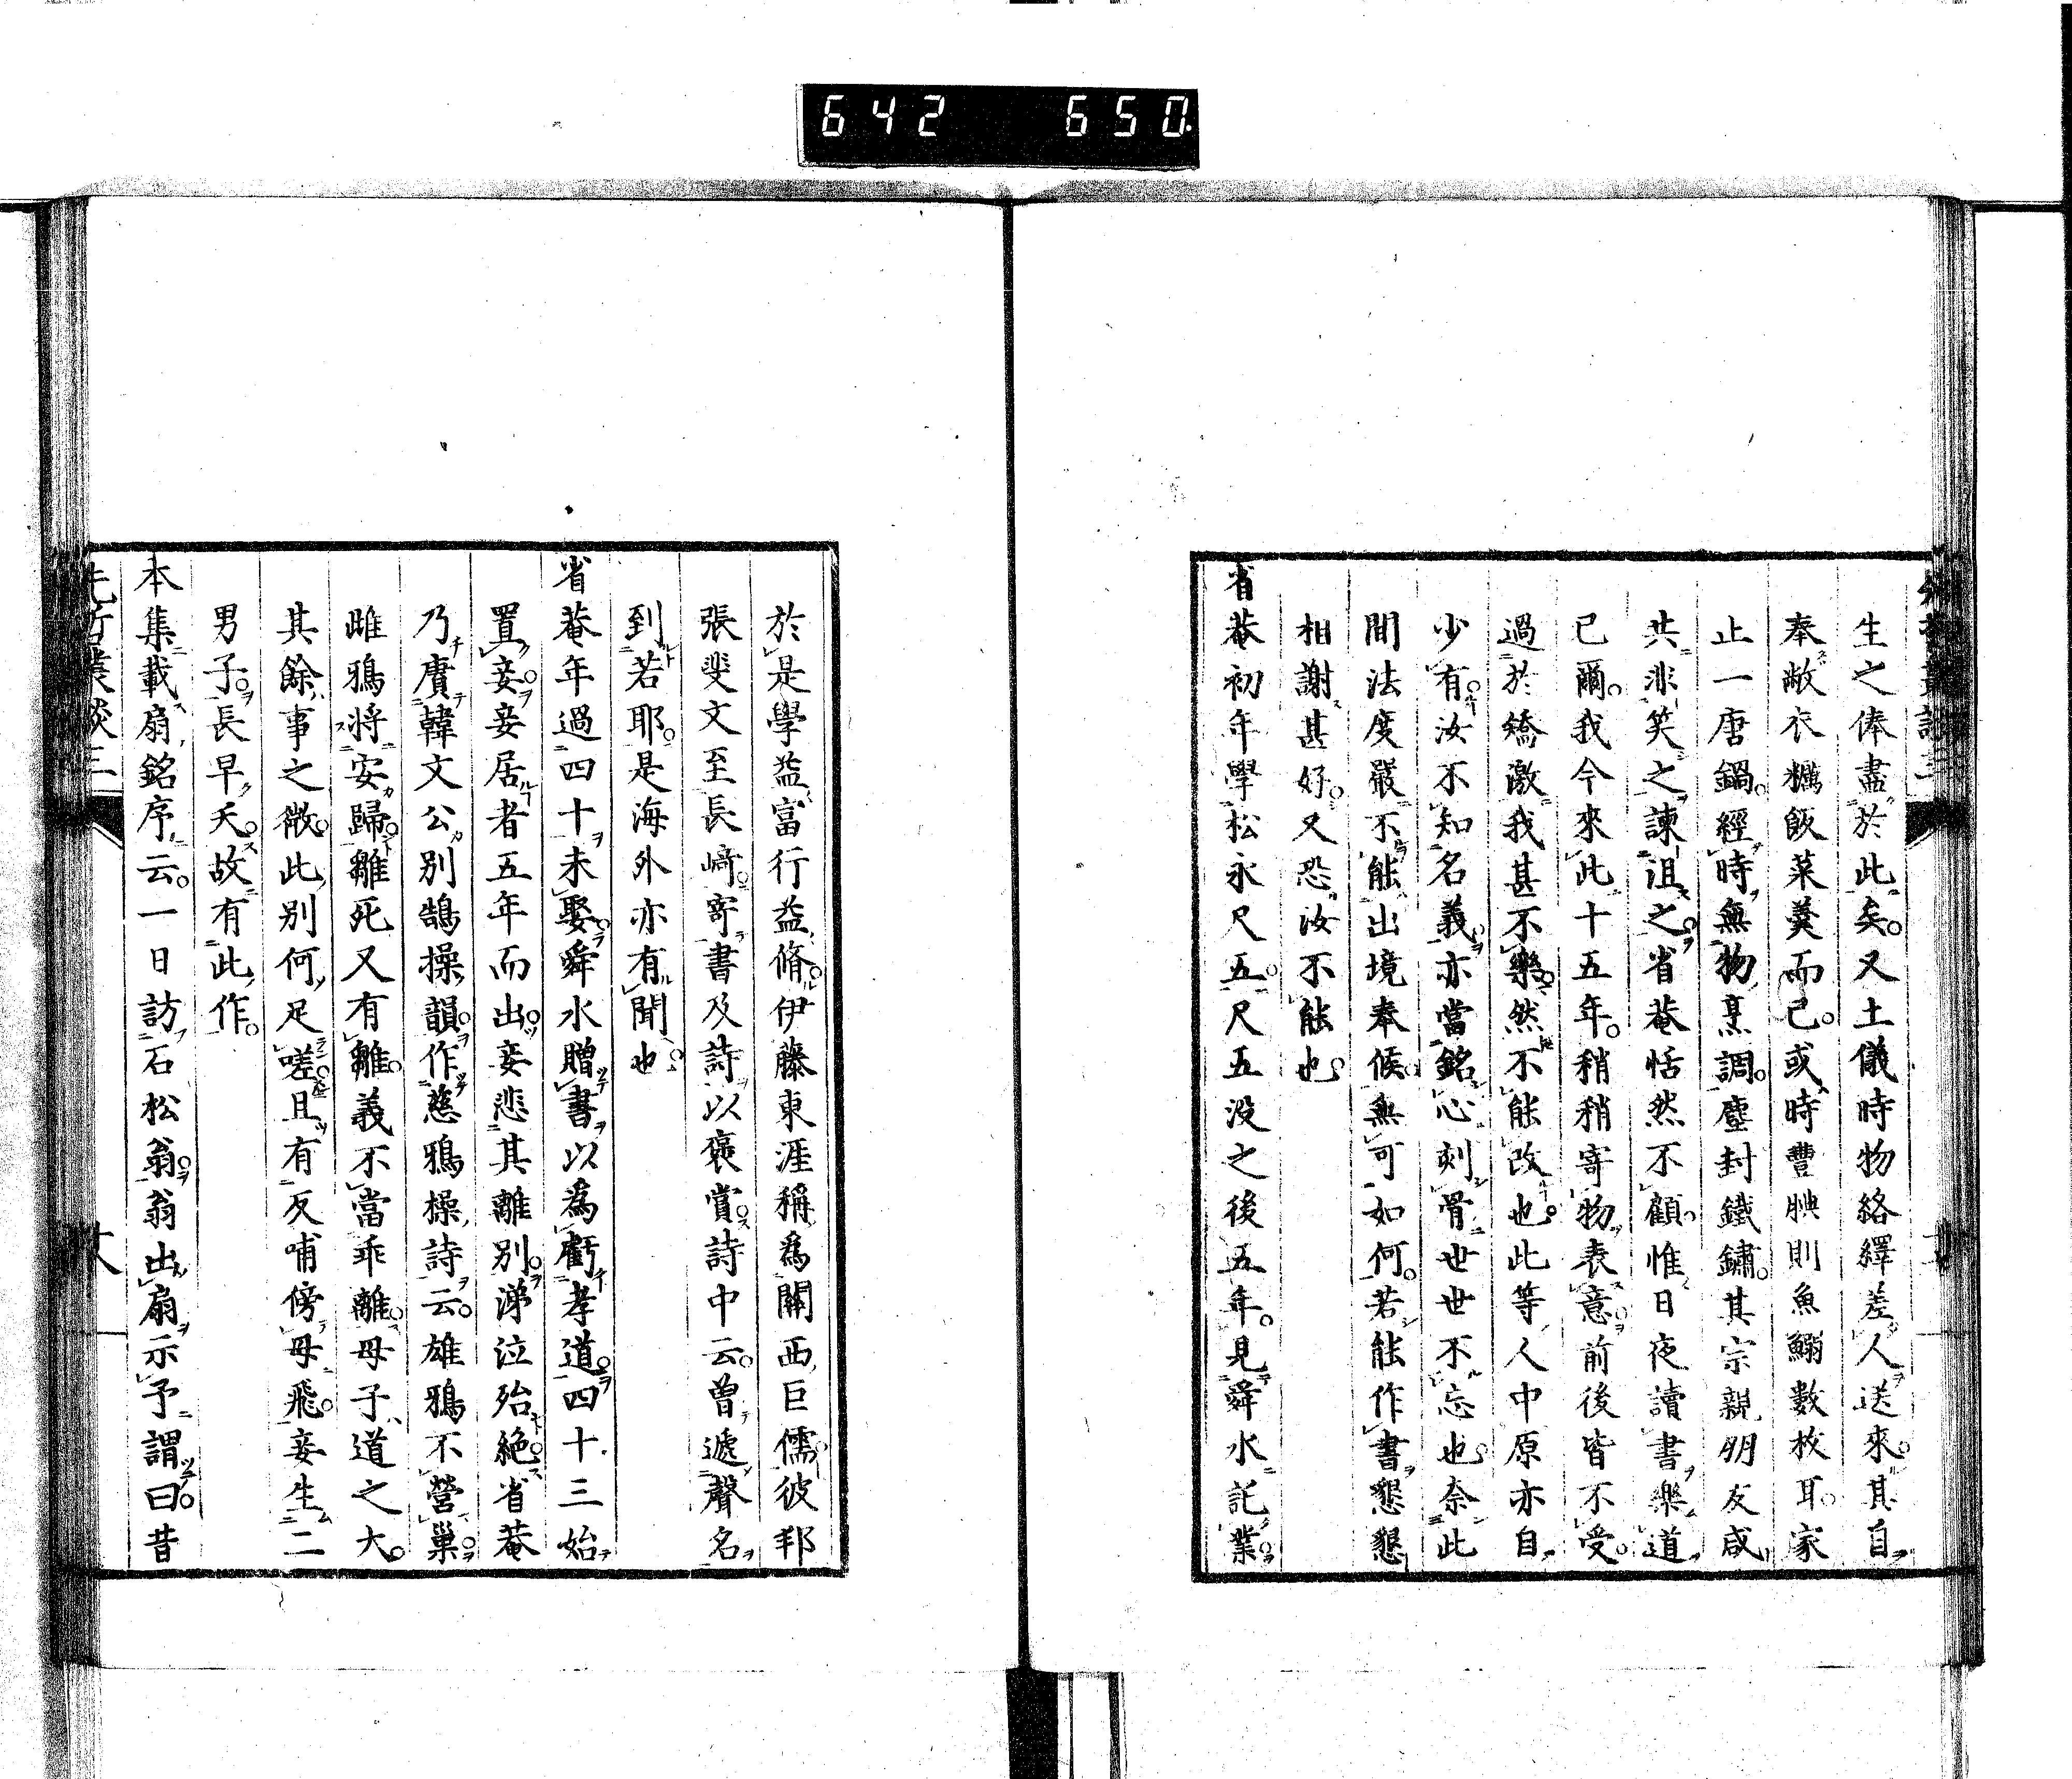 642 650
生之俸盡於此矣又土儀時物絡繹差人送來其自
奉敝衣糲飯菜羹而已或時豐腆則魚鰯數枚耳家
止一唐鍋經時無物烹調塵封鐵鏽其宗親朋友咸
共非笑之諫沮之省菴恬然不顧惟日夜讀書樂道
已爾我今來此十五年稍稍寄物表意前後皆不受
過於矯激我甚不樂然不能改也此等人中原亦自
少有汝不知名義亦當銘心刻骨世世不忘也奈此
間法度嚴不能出境奉候無可如何若能作書懇懇
相謝甚好又恐汝不能也
省菴初年學松永尺五尺五没之後五年見舜水託業
於是學益富行益脩伊藤東涯稱為關西巨儒彼邦
張斐文至長崎寄書及詩以褒賞詩中云曾遞聲名
到若耶是海外亦有聞也
省菴年過四十未娶舜水贈書以為虧孝道四十三始
置妾妾居者五年而出妾悲其離別涕泣殆絶省菴
乃賡韓文公別鵠操韻作慈鴉操詩云雄鴉不營巢
雌鴉將安歸雛死又有雛義不當乖離母子道之大
其餘事之微此別何足嗟且有反哺傍母飛妾生二
男子長早夭故有此作
本集載扇銘序云一日訪石松翁翁出扇示予謂曰昔
先哲叢談三